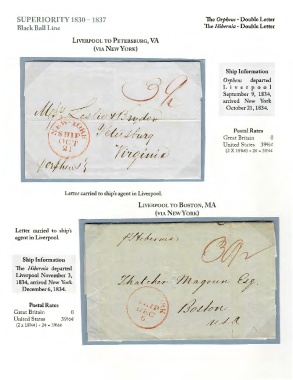 SUPERIORITY 1830 - 1837
Black Ball Line
The Orpheus - Double Letter
The Hibernia - Double Letter
LIVERPOOL TO PETERSBURG, VA
(VIA NEW YORK)
Leslie & Brydon
Petersburg
Virginia
p Orpheus
SHIP
OCT
21
Ship Information
The Orpheus departed
Liverpool
September 9, 1834,
arrived New York
October 21, 1834.
Postal Rates
Great Britain 0
United States 39½¢
(2 X 18¾¢) + 2¢ = 39½¢
Letter carried to ship's agent in Liverpool.
LIVERPOOL TO BOSTON, MA
(VIA NEW YORK)
Letter carried to ship's
agent in Liverpool.
Ship Information
The Hibernia departed
Liverpool November 3,
1834, arrived New York
December 6, 1834.
Postal Rates
Great Britain 0
United States 39½¢
(2 x 18¾¢) + 2¢ = 39½¢
p Hibernia
Thatcher Magoun Esq.
Boston
U.S.A
SHIP
DEC
6